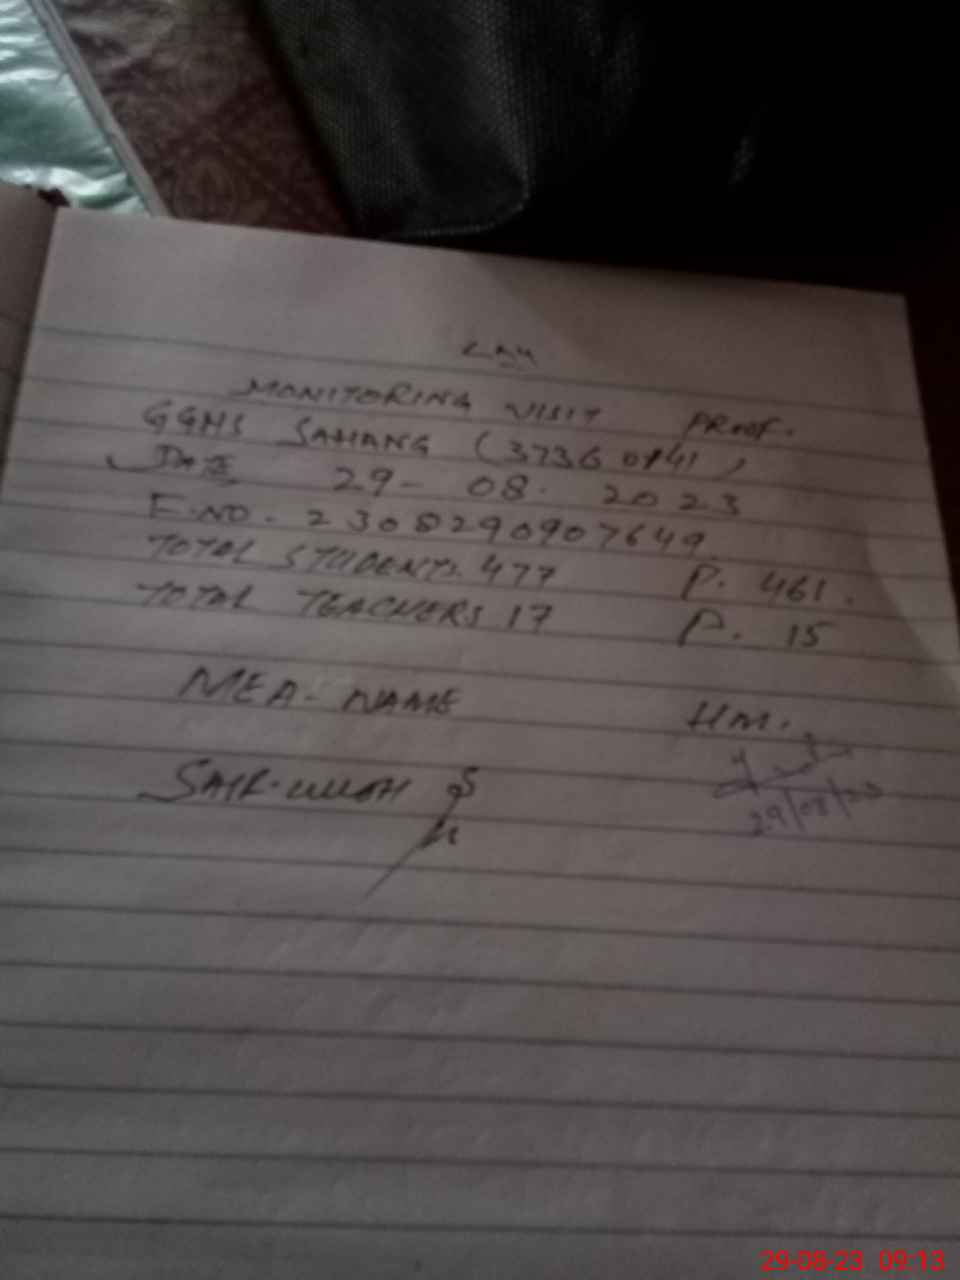 MONITORING VISIT PROOF.
GGHS SAHANG (37360141)
DATE 29-08-2023
F.NO. 230829090 7649
TOTAL STUDENTS. 477 P. 461.
TOTAL TEACHERS 17 P. 15
MEA- NAME HM.
29/08/23
29-08-23 09:13